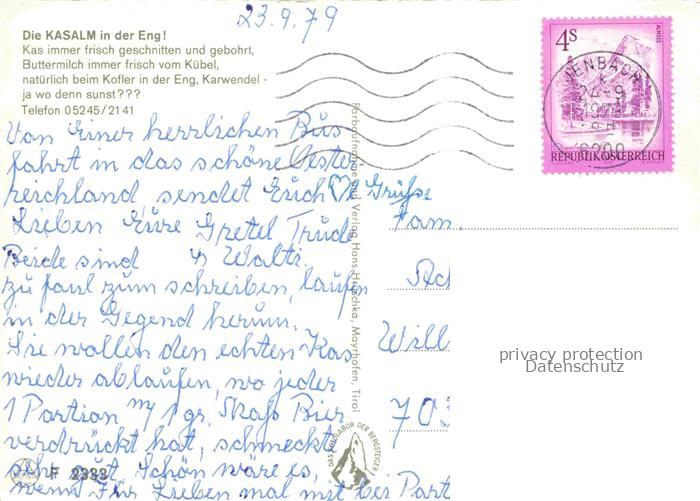 23.9.79
Die KASALM in der Eng!
Kas immer frisch geschnitten und gebohrt,
Buttermilch immer frisch vom Kübel,
natürlich beim Kofler in der Eng, Karwendel -
ja wo denn sunst???
Telefon 05245/2141
4S
ALMSEE
REPUBLIK ÖSTERREICH
JENBACH
24.-9.
6200
Von Einer herrlichen Bus
fahrt in das schöne Öster
reichland sendet Euch ♡e Grüße
Lieben Eure Gretel Trude
Beide sind Walti.
zu faul zum schreiben, laufen
in der Gegend herum.
Sie wollen den echten Kas
wieder ablaufen, wo jeder
1 Portion 1 gr. Bier
verdrückt hat, schmeckt
sehr gut. Schön wäre es,
wenn Ihr Lieben mal mit bei Part
Fam.
Will
703
Farbaufnahme und Verlag Hans Hruschka, Mayrhofen, Tirol
DAS FOTOLABOR DER BERGSTEIGER
F 2333
privacy protection
Datenschutz